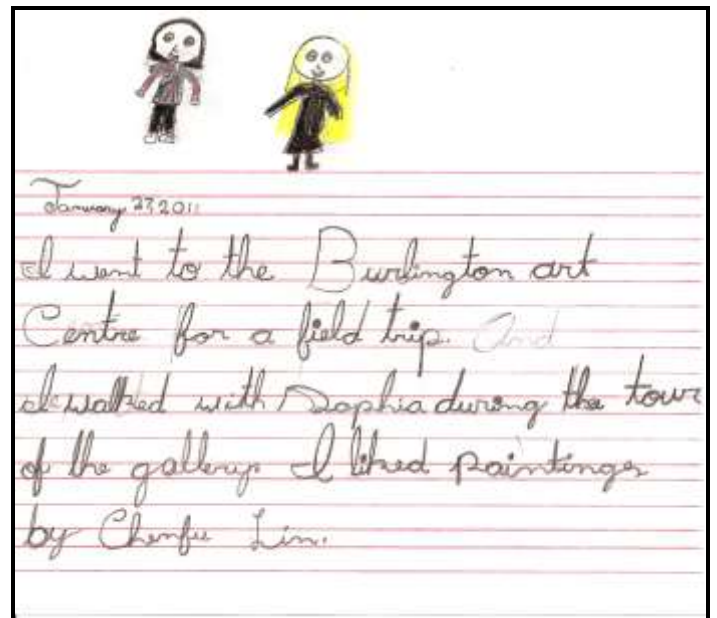 January 27, 2011
I went to the Burlington art
Centre for a field trip. And
I walked with Sophia during the tour
of the gallery. I liked paintings
by Chenfu Lin.